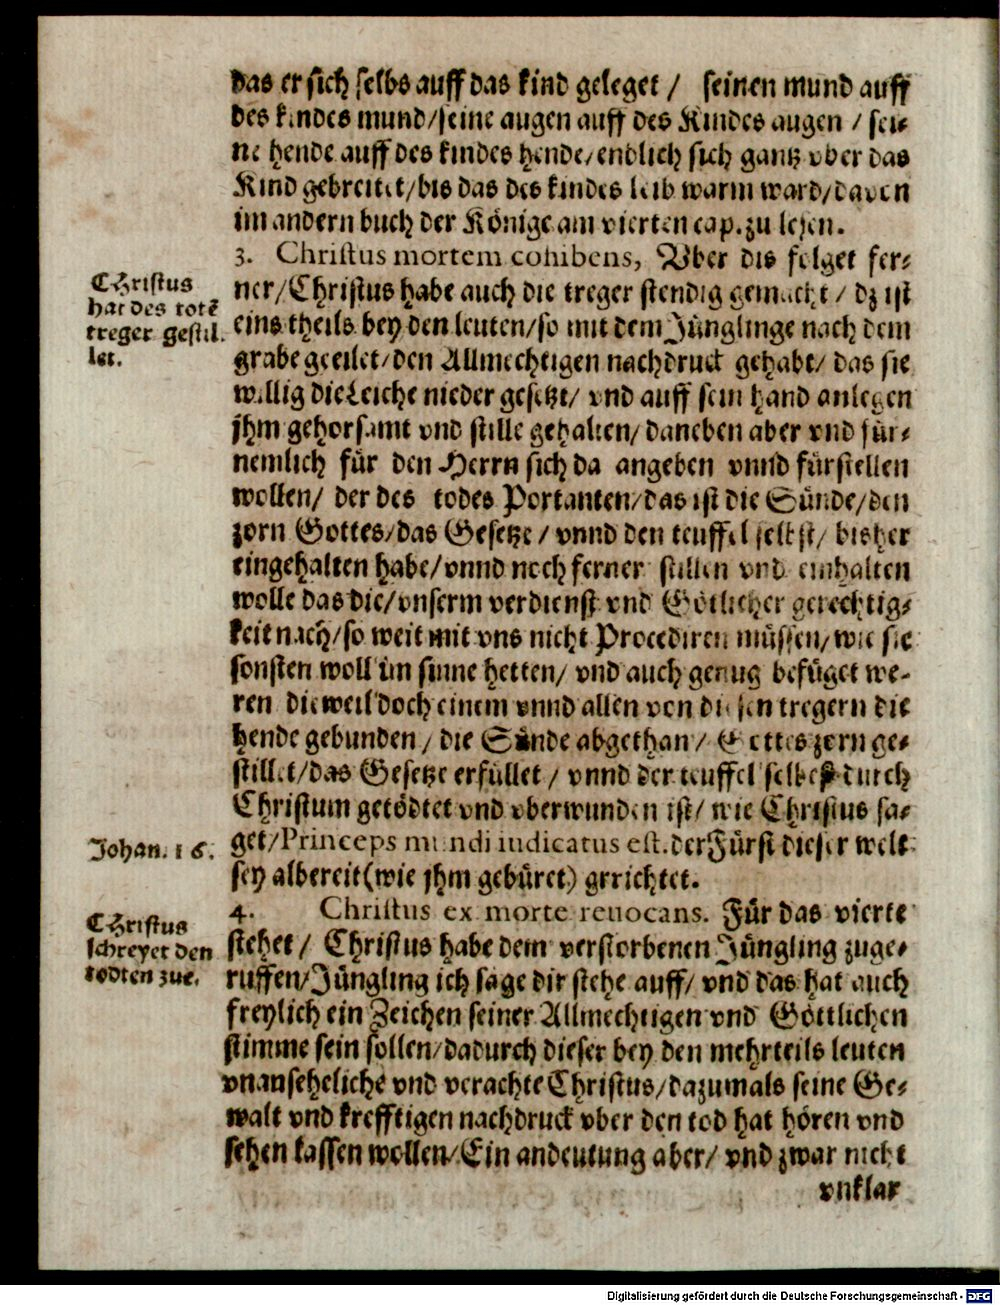 das er sich selbs auff das kind geleget / seinen mund auff
des kindes mund/seine augen auff des Kindes augen / sei⸗
ne hende auff des kindes hende/endlich sich gantz vber das
Kind gebreitet/bis das des kindes leib warm ward/davon
im andern buch der Könige am vierten cap. zu lesen.
3. Christus mortem cohibens, Vber dis folget fer⸗
CHristus
hat des totẽ
treger gestil⸗
let.
ner/Christus habe auch die treger stendig gemacht / dz ist
eins theils bey den leuten/so mit dem Jünglinge nach dem
grabe geeilet/den Allmechtigen nachdruck gehabt/ das sie
willig die Leiche nieder gesetzt/ vnd auff sein hand anlegen
jhm gehorsamt vnd stille gehalten/ daneben aber vnd für⸗
nemlich für den Herrn sich da angeben vnnd fürstellen
wollen/ der des todes Portanten/das ist die Sünde/den
zorn Gottes/das Gesetze / vnnd den teuffel selbst/ bisher
eingehalten habe/vnnd noch ferner stillen vnd einhalten
wolle das die/vnserm verdienst vnd Götlicher gerechtig⸗
keit nach/so weit mit vns nicht Procediren müssen/wie sie
sonsten woll im sinne hetten/ vnd auch genug befüget we⸗
ren dieweil doch einem vnnd allen von diesen tregern die
hende gebunden / die Sünde abgethan / Gottes zorn ge⸗
stillet/das Gesetze erfüllet / vnnd der teuffel selbest durch
Christum getödtet vnd vberwunden ist/ wie Christus sa⸗
Johan. 16.
get/Princeps mundi iudicatus est. der Fürst dieser welt
sey albereit (wie jhm gebüret) grrichtet.
4. Christus ex morte reuocans. Für das vierte
CHristus
schreyet den
todten zue.
stehet / Christus habe dem verstorbenen Jüngling zuge⸗
ruffen/Jüngling ich sage dir stehe auff/ vnd das hat auch
freylich ein Zeichen seiner Allmechtigen vnd Göttlichen
stimme sein sollen/dadurch dieser bey den mehrteils leuten
vnanseheliche vnd verachte Christus/dazumals seine Ge⸗
walt vnd krefftigen nachdruck vber den tod hat hören vnd
sehen lassen wollen/Ein andeutung aber/ vnd zwar nicht
vnklar
Digitalisierung gefördert durch die Deutsche Forschungsgemeinschaft - DFG